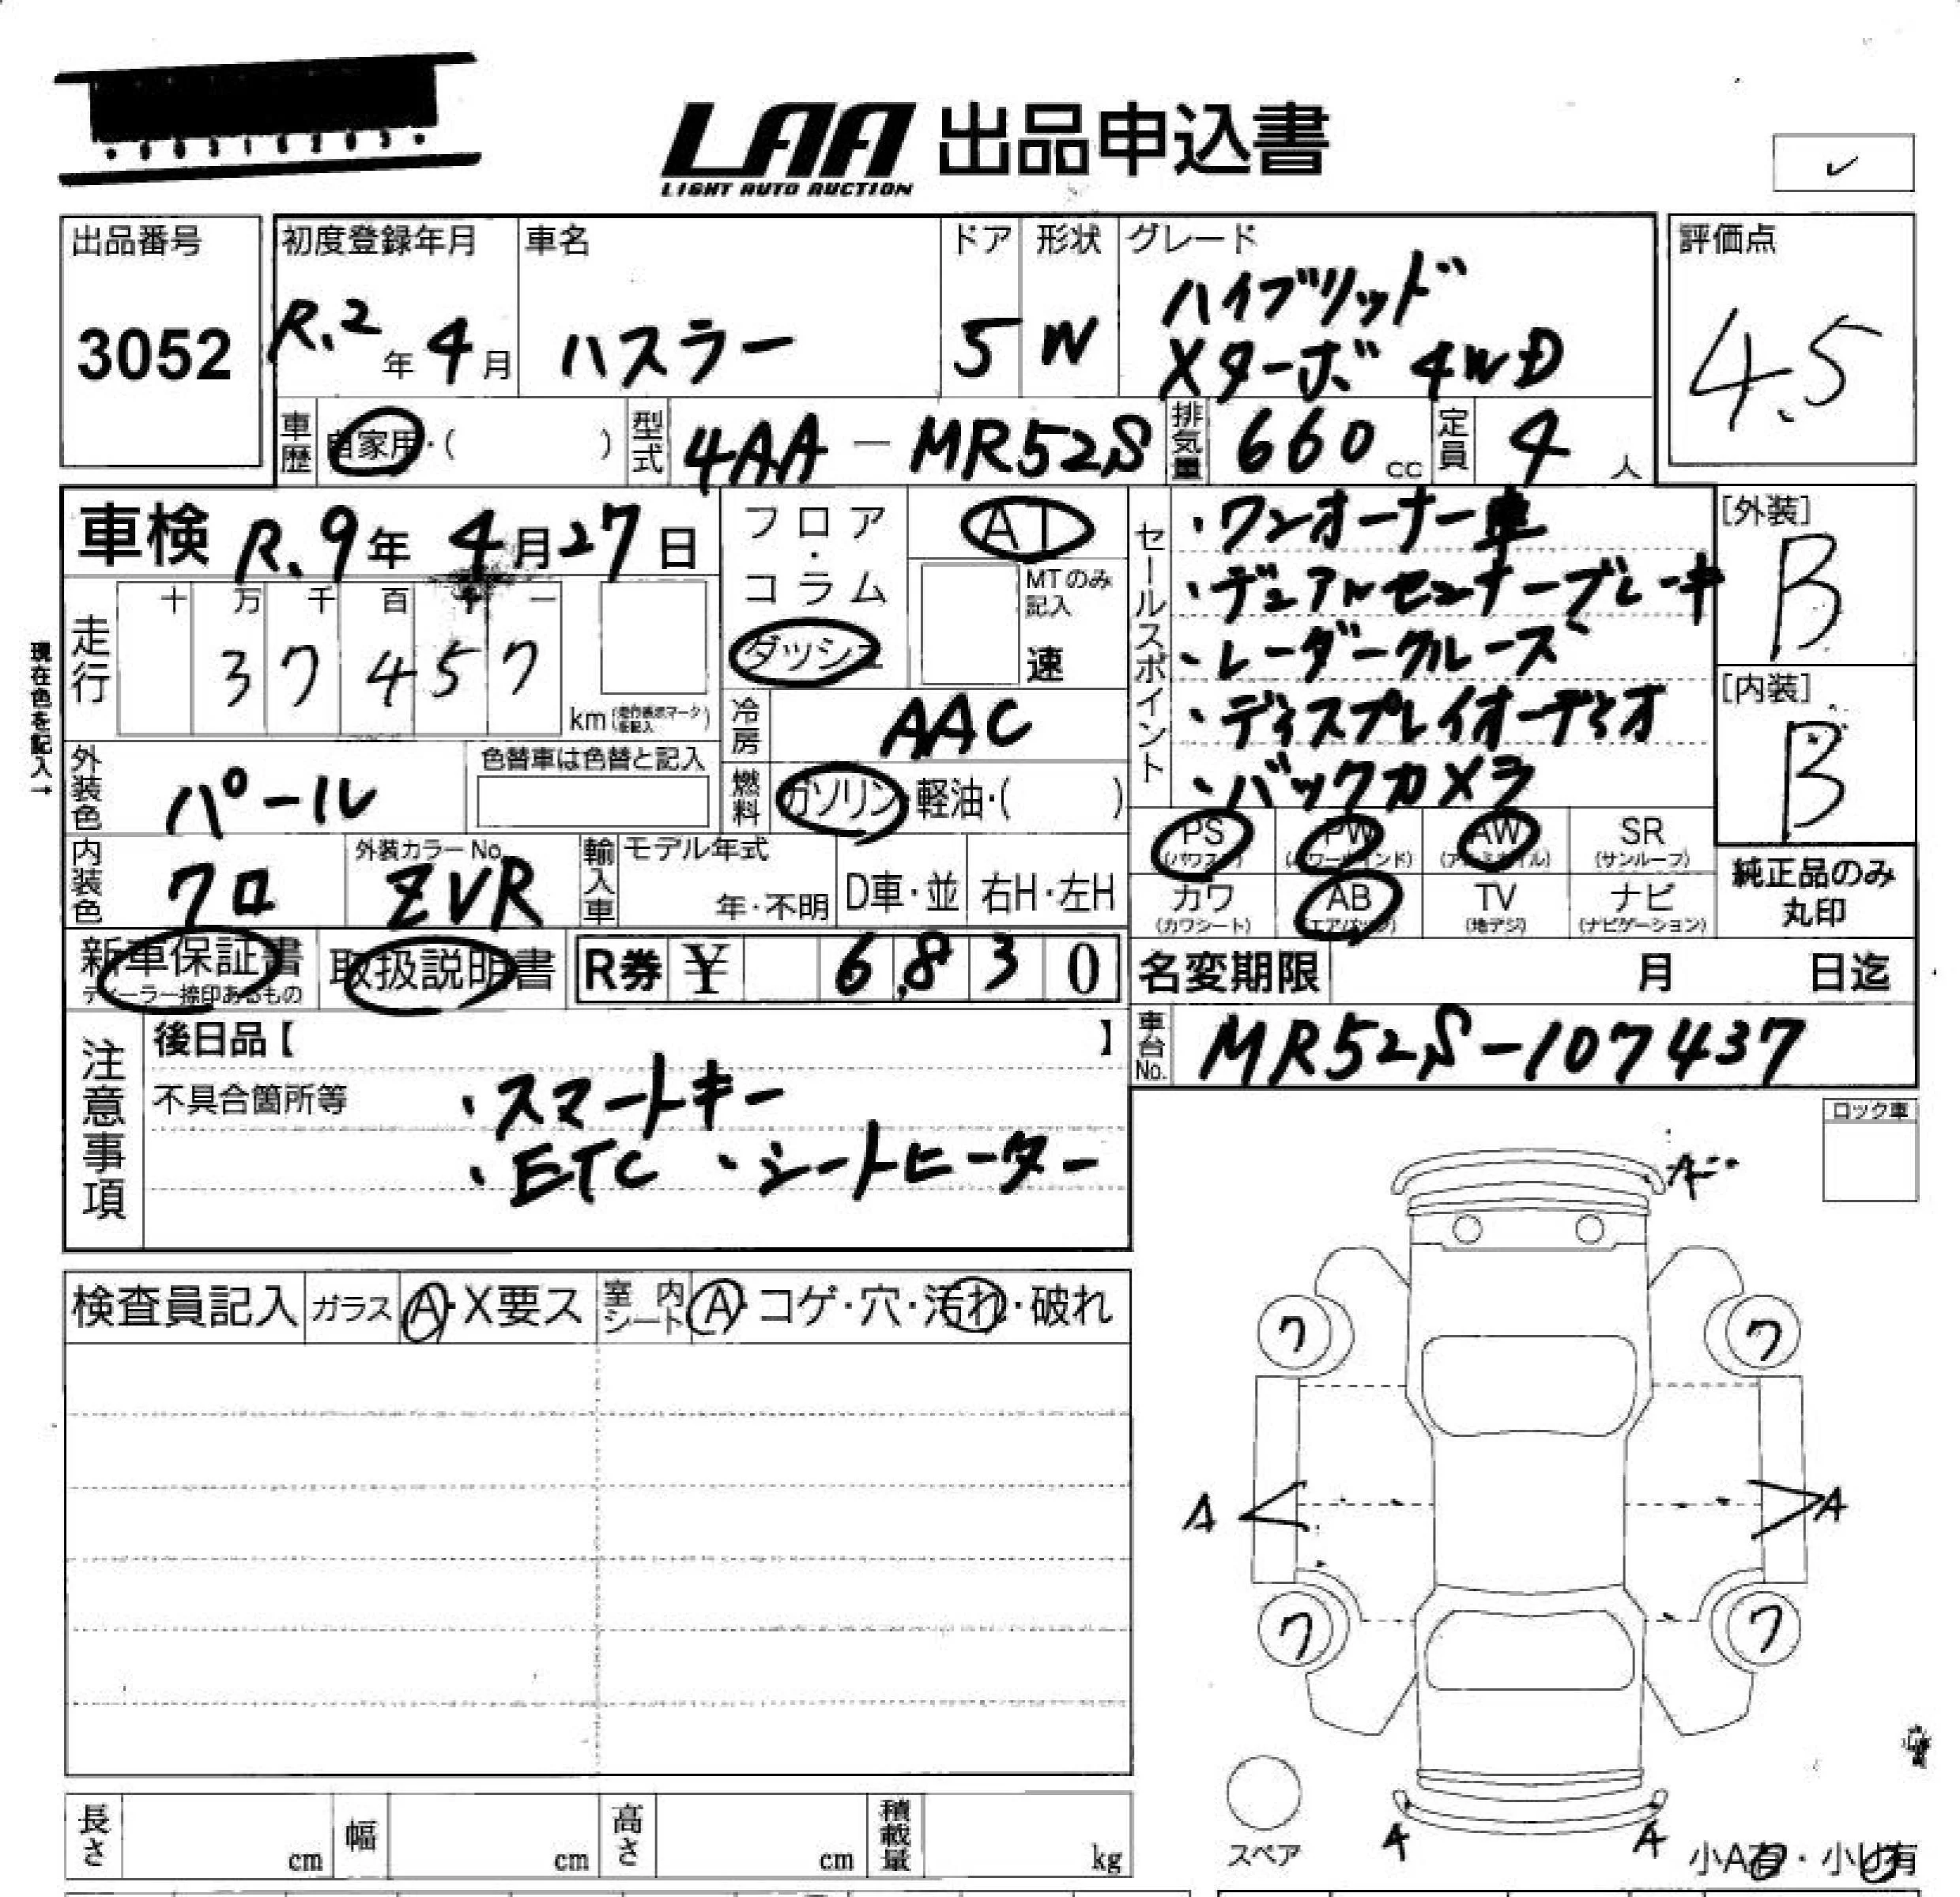 LAA 出品申込書
LIGHT AUTO AUCTION
出品番号
3052
初度登録年月
R.2年 4月
車名
ハスラー
ドア
5
形状
W
グレード
ハイブリッド
Xターボ 4WD
評価点
4.5
車歴 自家用・( )
型式 4AA-MR52S
排気量 660 cc
定員 4 人
車検 R.9年 4月27日
フロア・コラム
ダッシュ
AT
MTのみ記入
速
セールスポイント
・ワンオーナー車
・デュアルセンサーブレーキ
・レーダークルーズ
・ディスプレイオーディオ
・バックカメラ
[外装]
B
[内装]
B
現在色を記入→
走行
十 万 千 百 十 一
3 7 4 5 7
km
冷房 AAC
燃料 ガソリン・軽油・( )
外装色 パール
色替車は色替と記入
内装色 クロ
外装カラーNo.
ZVR
輸入車
モデル年式
年・不明
D車・並
右H・左H
PS (パワステ)
PW (パワーウインド)
AW (アルミホイル)
SR (サンルーフ)
カワ (カワシート)
AB (エアバッグ)
TV (地デジ)
ナビ (ナビゲーション)
純正品のみ
丸印
新車保証書
ディーラー捺印あるもの
取扱説明書
R券 ¥ 6,830
名変期限 月 日迄
車台No. MR52S-107437
注意事項
後日品【 】
不具合箇所等
・スマートキー
・ETC ・シートヒーター
ロック車
A
検査員記入
ガラス A・X要ス
室内シート A・コゲ・穴・汚れ・破れ
ワ ワ
A A
ワ ワ
スペア
A A
小A有・小U有
長さ cm
幅 cm
高さ cm
積載量 kg